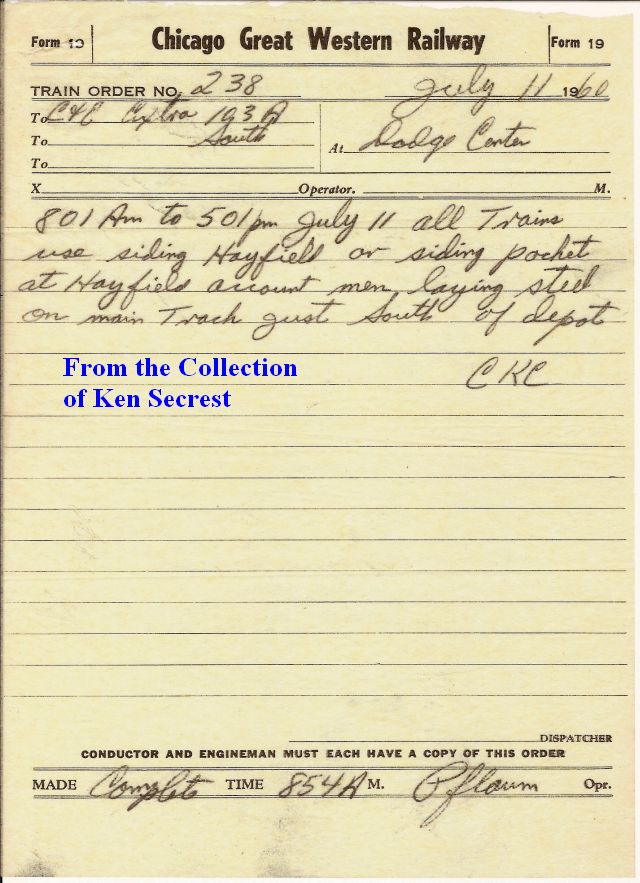 Form 19 Chicago Great Western Railway Form 19
TRAIN ORDER NO. 238 July 11 1960
To C&E Extra 193 A
To South At Dodge Center
To
X Operator. M.
801 Am to 501 pm July 11 all Trains
use siding Hayfield or siding pocket
at Hayfield account men laying steel
on main Track just South of depot
CKC
From the Collection
of Ken Secrest
DISPATCHER
CONDUCTOR AND ENGINEMAN MUST EACH HAVE A COPY OF THIS ORDER
MADE Complete TIME 854A M. Pflaum Opr.